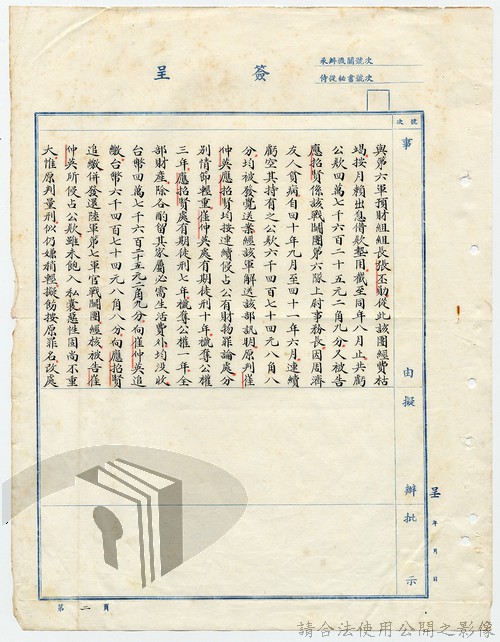 簽呈
來辦機關號次
侍從秘書號次
號次
事由擬辦批示
與第六軍預財組組長張丕勛從此該團經費枯
竭按月賴出息借款墊用截至同年八月止共虧
公款四萬七千六百二十五元二角九分又被告
應招賢係該戰鬪團第六隊上尉事務長因周濟
友人貧病自四十年九月至四十一年六月連續
虧空其持有之公款六千四百七十四元八角八
分均被發覺送案經該軍解送該部訊明原判崔
仲英應招賢均按連續侵占公有財物罪論處分
別情節輕重崔仲英處有期徒刑十年褫奪公權
三年應招賢處有期徒刑七年褫奪公權一年全
部財產除各酌留其家屬必需生活費外均沒收
台幣四萬七千六百二十五元二角九分向崔仲英追
繳台幣六千四百七十四元八角八分向應招賢
追繳併發還陸軍第七軍官戰鬪團經核被告崔
仲英所侵占公款雖未飽入私囊惡性固尚不重
大惟原判量刑似仍嫌稍輕擬飭按原罪名改處
呈 年 月 日
第二頁
請合法使用公開之影像